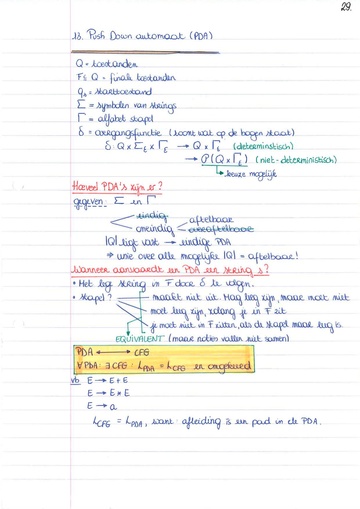 29.
13. Push Down automaat (PDA)
Q = toestanden
F ⊆ Q = finale toestanden
q₀ = starttoestand
Σ = symbolen van strings
Γ = alfabet stapel
δ = overgangsfunctie (soort wat op de bogen staat)
δ: Q × Σε × Γε → Q × Γε (deterministisch)
→ P(Q × Γε) (niet-deterministisch)
↳ keuze mogelijk
Hoeveel PDA's zijn er?
gegeven: Σ en Γ
eindig
oneindig
aftelbaar
overaftelbaar
|Q| ligt vast → eindige PDA
⇒ unie over alle mogelijke |Q| = aftelbaar!
Wanneer aanvaardt een PDA een string s?
• Met lege string in F door δ te volgen.
• Stapel?
maakt niet uit. Mag leeg zijn, maar moet niet
moet leeg zijn, zolang je in F zit
je moet niet in F zitten, als de stapel maar leeg is.
EQUIVALENT (maar noties vallen niet samen)
PDA ↔ CFG
∀PDA: ∃CFG: L_PDA = L_CFG en omgekeerd
vb. E → E + E
E → E * E
E → a
L_CFG = L_PDA, want afleiding is een pad in de PDA.